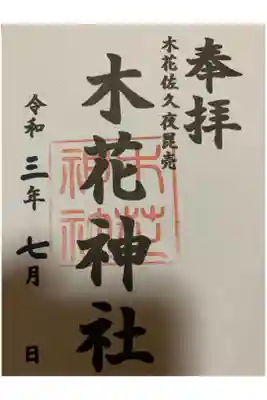 奉拝
木花佐久夜毘売
木花神社
木花神社
令和三年七月 日